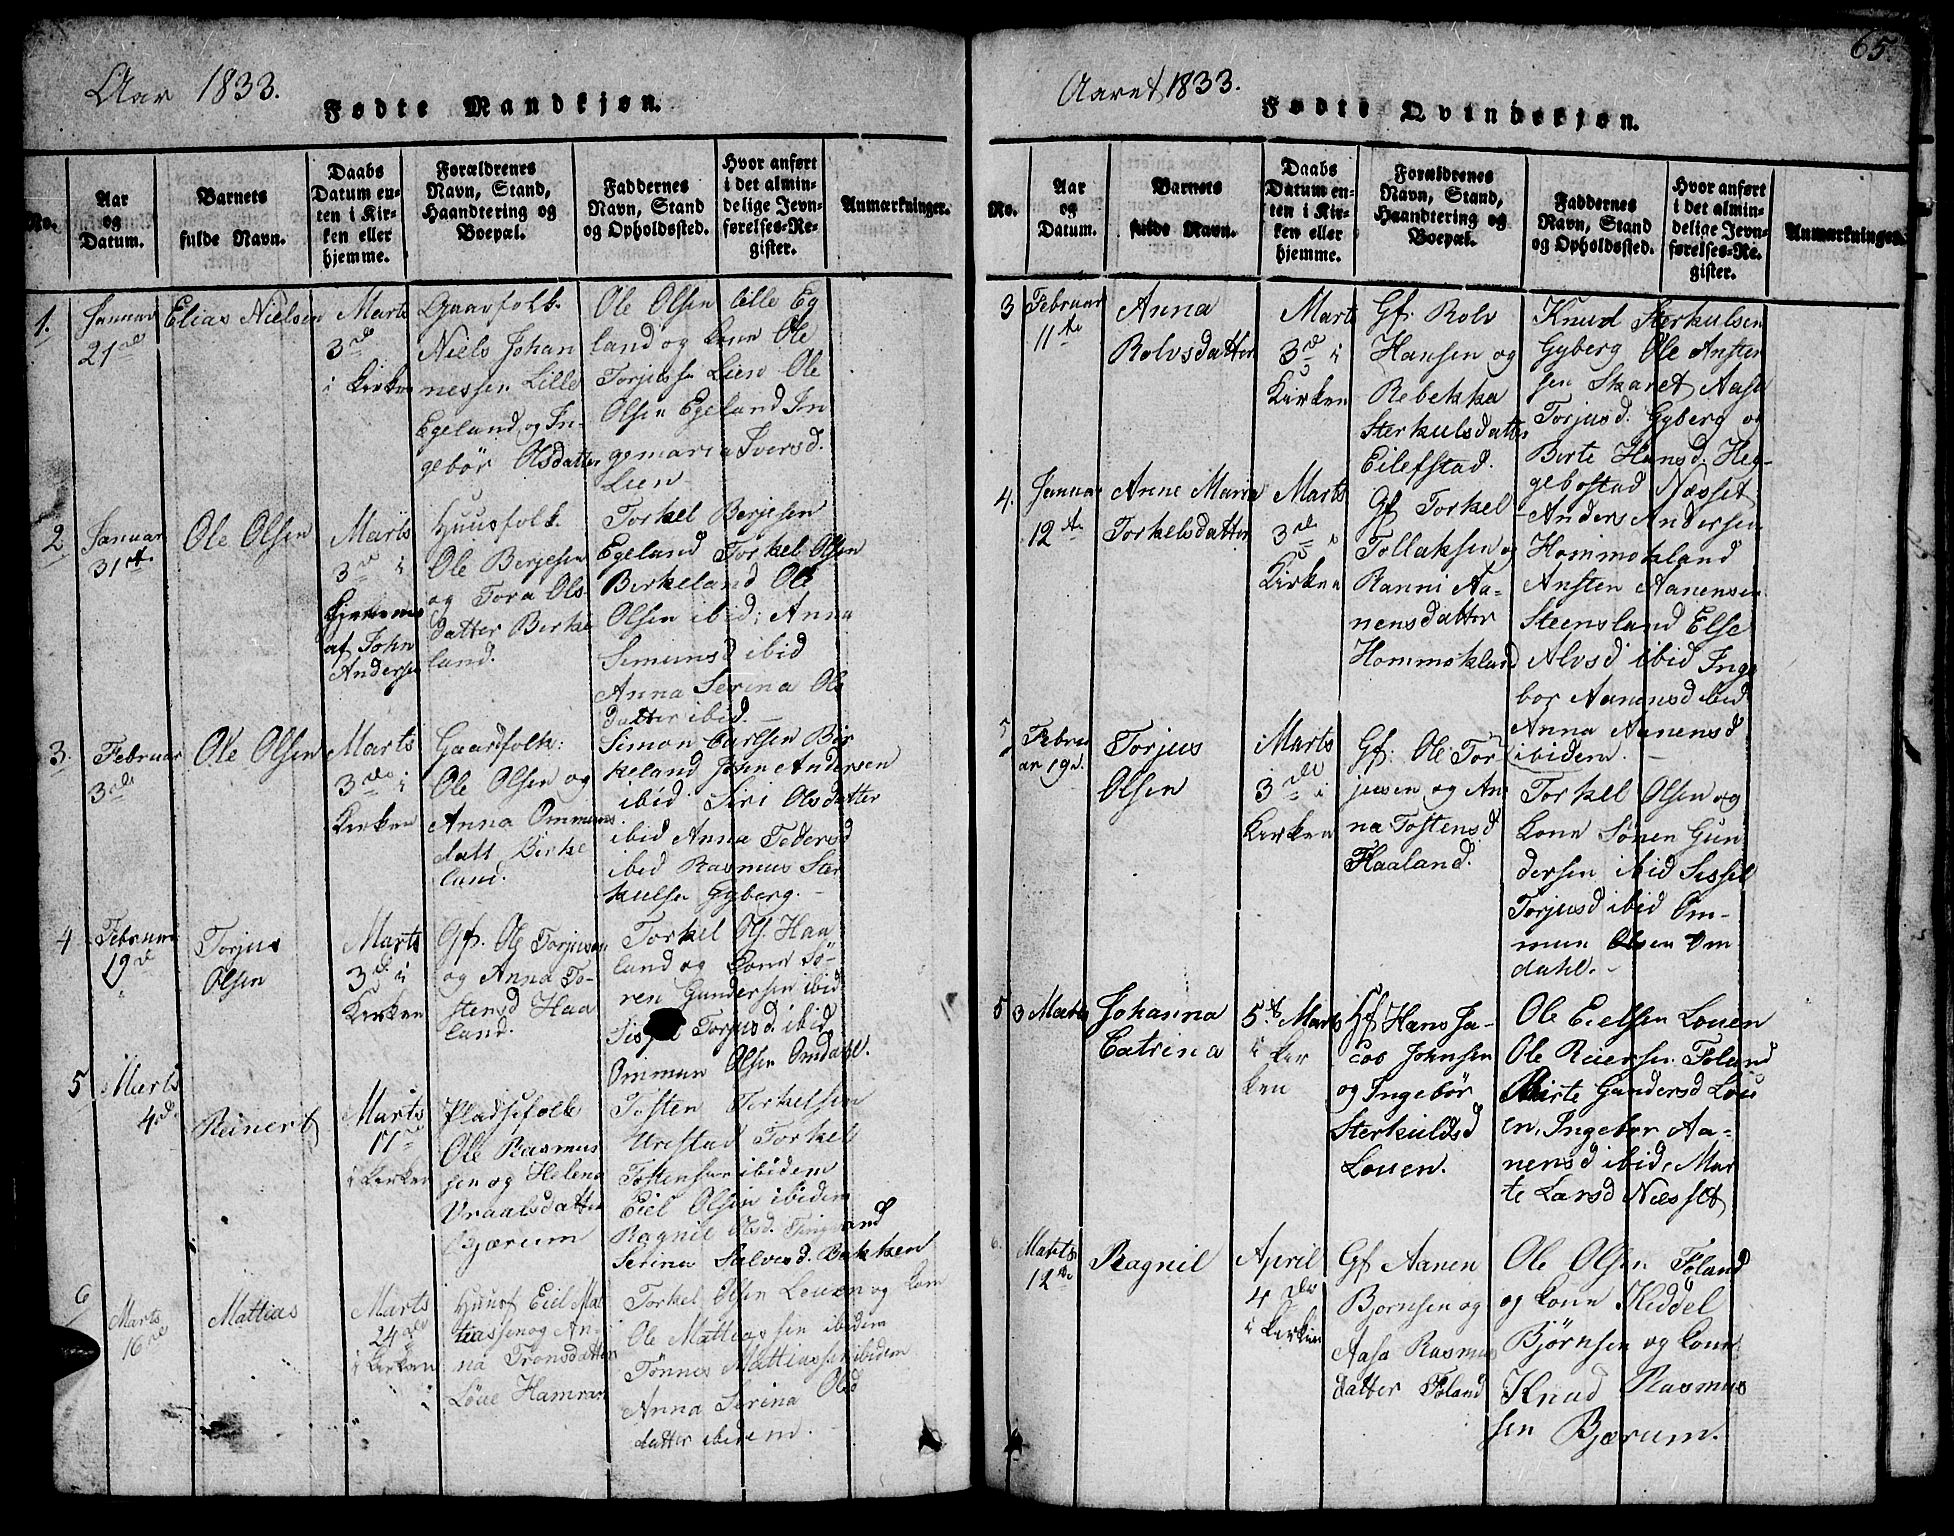 Aar 1833.
Fødte Mandkjøn.
No.
Aar
og
Datum.
Barnets
fulde Navn.
Daabs
Datum en-
ten i Kir-
ken eller
hjemme.
Forældrenes
Navn, Stand,
Haandtering og
Boepæl.
Faddernes
Navn, Stand
og Opholdssted.
Hvor anført
i det almin-
delige Jevn-
førelses-Re-
gister.
Anmærkninger.
1.
Januar
21de
Elias Nielsen
Marts
3de
i Kirken
Gaarfolk.
Niels Johan
nessen Lille
Egeland og In-
gebør Olsdatter
Ole Olsen lille Eg
land og Kone Ole
Torjussen Lien Ole
Olsen Egeland In
gemaria Iversd.
Lien
2
Januar
31te
Ole Olsen
Marts
3de i
Hjemme
af John
Andersen
Huusfolk
Ole Berjesen
og Tora Ols-
datter Birke
land.
Torkel Berjesen
Egeland Torkel Olsen
Birkeland Ole
Olsen ibid; Anna
Simunsd ibid
Anna Serina Ols
datter ibid.
3.
Februar
3de
Ole Olsen
Marts
3de i
Kirken
Gaardfolk:
Ole Olsen og
Anna Ommuns
datt Birke
land.
Simon Carlsen Bir
keland John Andersen
ibid Siri Olsdatter
ibid Anna Pedersd
ibid Rasmus Ster
kulsen Gyberg.
4
Februar
19de
Torjus
Olsen
Marts
3de i
Kirken
Gf. Ole Torjusen
og Anna To-
stensd Haa
land.
Torkel Ols. Haa
land og Kone Sö-
ren Gundersen ibid
Torjusd. ibid
Ommun Olsen Omdahl.
5
Marts
4de
Reinert
Marts
17de
i Kirken
Pladsefolk
Ole Rasmus
sen og Helena
Vraalsdatter
Bjærum
Tosten Terkelsen
Urestad Torkel
Tostensen ibidem
Eiel Olsen ibidem
Ragnil Olsd.
Serina Salvesd. Bakken
6
Marts
16de
Mattias
Marts
24de
i Kirken
Huusf Eiel Mat
tiassen og An-
na Tronsdatter
Löue Hamran
Torkel Olsen Louen og Kone
Ole Mattiassen ibidem
Tönnes Mattiassen ibidem
Anna Serina Ols
datter ibidem.
65.
Aaret 1833.
Fødte Qvindekjøn.
No.
Aar
og
Datum.
Barnets
fulde Navn.
Daabs
Datum en-
ten i Kir-
ken eller
hjemme.
Forældrenes
Navn, Stand,
Haandtering og
Boepæl.
Faddernes
Navn, Stand
og Opholdssted.
Hvor anført
i det almin-
delige Jevn-
førelses-Re-
gister.
Anmærkninger.
3
Februar
11te
Anna
Rolvsdatter
Marts
3de i
Kirken
Gf. Rolv
Hansen og
Rebekka
Sterkulsdatter
Eilefstad.
Knud Sterkulsen
Gyberg Ole Ansten
sen Skaret Aase
Torjusd. Gyberg og
Birte Hansd. Heg-
gebostad Næsset
4.
Januar
12te
Anne Maria
Torkelsdatter
Marts
3de i
Kirken
Gf Torkel
Tollaksen og
Ranni Aa-
nensdatter
Hommokland
Anders Andersen
Hommokland
Ansten Aanensen
Steensland Else
Alvsd ibid Inge
bor Aanensd ibid
Anna Aanensd
ibidem.
5
Febru
ar 19de
Torjus
Olsen
Marts
3de i
Kirken
Gf: Ole Tor
jussen og An
na Tostensd
Haaland.
Torkel Olsen og
Kone Sören Gun
dersen ibid Sissel
Torjusd ibid Om-
mun Olsen Om
dahl.
5
3 Marts
Johanna
Catrina
5te Marts
i Kir
ken
Gf Hans Ja-
cob Johnsen
og Ingebör
Sterkuldsd
Louen.
Ole Eielsen Louen
Ole Reiersen Föland
Birte Gundersd Lou
en, Ingebor Aa-
nensd ibid, Mar
te Larsd Næsset
6.
Marts
12te
Ragnil
April
4de
i Kirken
Gf Aanen
Bjornsen og
Aasa Rasmus
datter Föland
Ole Olsen Föland
og Kone Kiddel
Bjørnsen og Kone
Knud Rasmus
sen Bjærum.